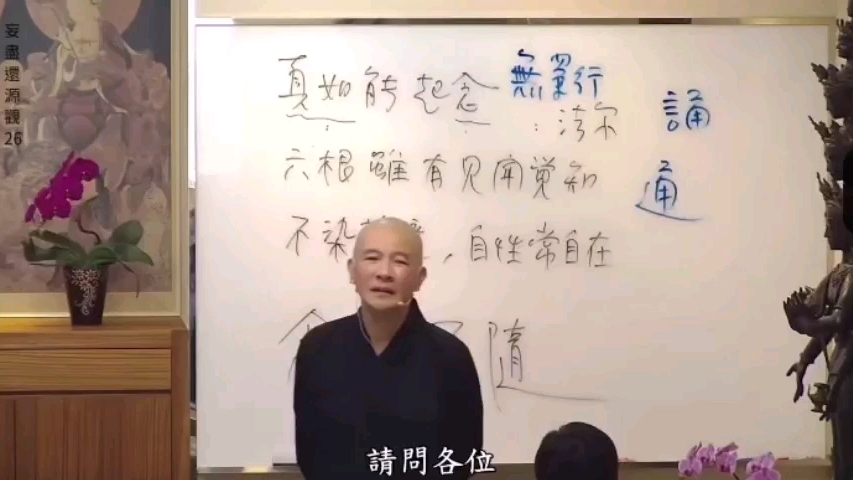 妄盡還源觀26
真如能起念 無罣行
:法尔
誦
六根雖有见闻觉知
通
不染 ,自性常自在
隨
請問各位